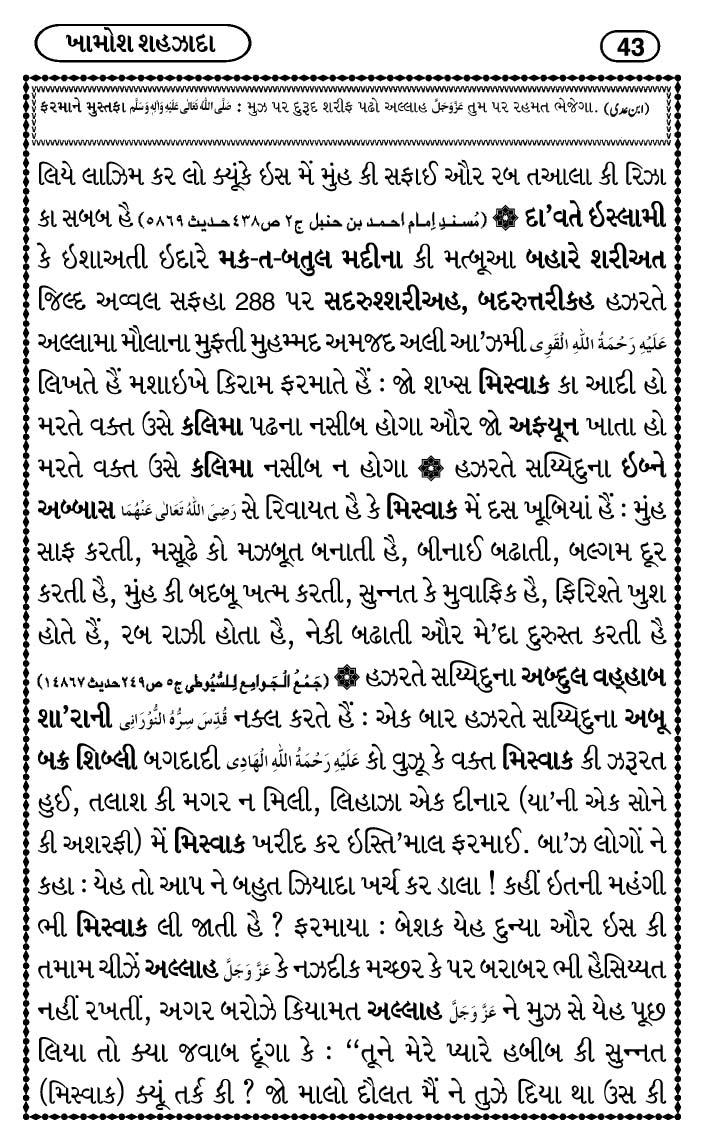 ખામોશ શહઝાદા
43
ફરમાને મુસ્તફા صَلَّى اللهُ تَعَالٰى عَلَيْهِ وَاٰلِهٖ وَسَلَّم : મુઝ પર દુરૂદ શરીફ પઢો અલ્લાહ عَزَّوَجَلَّ તુમ પર રહમત ભેજેગા. (ابن عدی)
લિયે લાઝિમ કર લો ક્યૂંકે ઇસ મેં મુંહ કી સફાઈ ઔર રબ તઆલા કી રિઝા
કા સબબ હૈ (مُسنَدِ اِمام احمد بن حنبل ج٢ ص٤٣٨ حديث ٥٨٦٩) ۞ દા’વતે ઇસ્લામી
કે ઇશાઅતી ઇદારે મક-ત-બતુલ મદીના કી મત્બૂઆ બહારે શરીઅત
જિલ્દ અવ્વલ સફહા 288 પર સદરુશ્શરીઅહ, બદરુત્તરીકહ હઝરતે
અલ્લામા મૌલાના મુફ્તી મુહમ્મદ અમજદ અલી આ’ઝમી عَلَيْهِ رَحْمَةُ اللهِ الْقَوِى
લિખતે હૈં મશાઇખે કિરામ ફરમાતે હૈં : જો શખ્સ મિસ્વાક કા આદી હો
મરતે વક્ત ઉસે કલિમા પઢના નસીબ હોગા ઔર જો અફ્યૂન ખાતા હો
મરતે વક્ત ઉસે કલિમા નસીબ ન હોગા ۞ હઝરતે સય્યિદુના ઇબ્ને
અબ્બાસ رَضِىَ اللهُ تَعَالٰى عَنْهُمَا સે રિવાયત હૈ કે મિસ્વાક મેં દસ ખૂબિયાં હૈં : મુંહ
સાફ કરતી, મસૂઢે કો મઝબૂત બનાતી હૈ, બીનાઈ બઢાતી, બલ્ગમ દૂર
કરતી હૈ, મુંહ કી બદબૂ ખત્મ કરતી, સુન્નત કે મુવાફિક હૈ, ફિરિશ્તે ખુશ
હોતે હૈં, રબ રાઝી હોતા હૈ, નેકી બઢાતી ઔર મે’દા દુરુસ્ત કરતી હૈ
(جَمْعُ الْجَوامِع لِلسُّيُوطى ج٥ ص٢٤٩ حديث ١٤٨٦٧) ۞ હઝરતે સય્યિદુના અબ્દુલ વહ્હાબ
શા’રાની قُدِّسَ سِرُّهُ النُّوْرَانِى નક્લ કરતે હૈં : એક બાર હઝરતે સય્યિદુના અબૂ
બક્ર શિબ્લી બગદાદી عَلَيْهِ رَحْمَةُ اللهِ الْهَادِى કો વુઝૂ કે વક્ત મિસ્વાક કી ઝરૂરત
હુઈ, તલાશ કી મગર ન મિલી, લિહાઝા એક દીનાર (યા’ની એક સોને
કી અશરફી) મેં મિસ્વાક ખરીદ કર ઇસ્તિ’માલ ફરમાઈ. બા’ઝ લોગોં ને
કહા : યેહ તો આપ ને બહુત ઝિયાદા ખર્ચ કર ડાલા ! કહીં ઇતની મહંગી
ભી મિસ્વાક લી જાતી હૈ ? ફરમાયા : બેશક યેહ દુન્યા ઔર ઇસ કી
તમામ ચીઝેં અલ્લાહ عَزَّوَجَلَّ કે નઝદીક મચ્છર કે પર બરાબર ભી હૈસિય્યત
નહીં રખતીં, અગર બરોઝે કિયામત અલ્લાહ عَزَّوَجَلَّ ને મુઝ સે યેહ પૂછ
લિયા તો ક્યા જવાબ દૂંગા કે : ‘‘તૂને મેરે પ્યારે હબીબ કી સુન્નત
(મિસ્વાક) ક્યૂં તર્ક કી ? જો માલો દૌલત મૈં ને તુઝે દિયા થા ઉસ કી